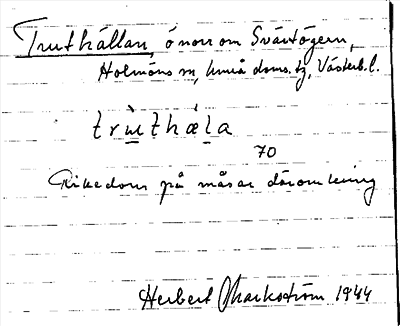 Truthällan, ö norr om Svärtögern,
Holmöns sn, Umeå doms. tg, Västerb. l.
trùthæ̀la
70
Rikedom på måsar däromkring
Herbert Markström 1944